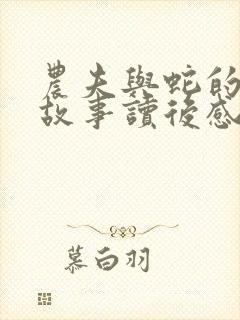 農夫與蛇的
故事讀後感
慕白羽